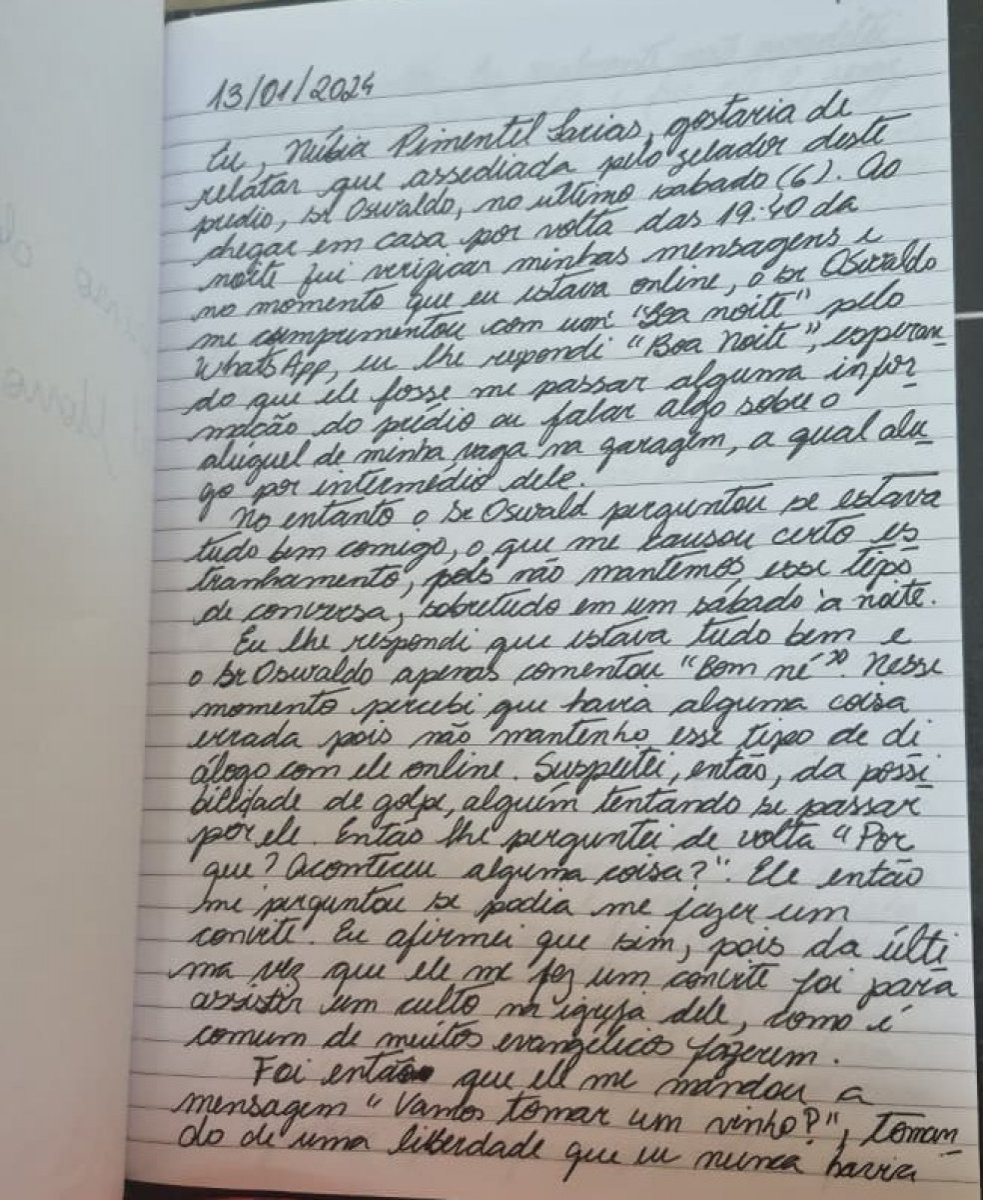 13/01/2024
Eu, Núbia Pimentel Sarias, gostaria de
relatar que assediada pelo zelador deste
prédio, Sr Oswaldo, no ultimo sabado (6). Ao
chegar em casa por volta das 19:40 da
noite fui verificar minhas mensagens e
no momento que eu estava online, o Sr Oswaldo
me cumprimentou com um "Boa noite" pelo
WhatsApp, eu lhe respondi "Boa Noite", esperan-
do que ele fosse me passar alguma infor-
mação do prédio ou falar algo sobre o
aluguel de minha vaga na garagem, a qual alu-
go por intermédio dele.
No entanto o Sr Oswald perguntou se estava
tudo bem comigo, o que me causou certo es
tranhamento, pois não mantemos esse tipo
de conversa, sobretudo em um sábado à noite.
Eu lhe respondi que estava tudo bem e
o Sr Oswaldo apenas comentou "Bom né". Nesse
momento percebi que havia alguma coisa
errada pois não mantenho esse tipo de di
álogo com ele online. Suspeitei, então, da possi
bilidade de golpe, alguém tentando se passar
por ele. Então lhe perguntei de volta "Por
que? Aconteceu alguma coisa?". Ele então
me perguntou se podia me fazer um
convite. Eu afirmei que sim, pois da últi
ma vez que ele me fez um convite foi para
assistir um culto na igreja dele, como é
comum de muitos evangélicos fazerem.
Foi então que ele me mandou a
mensagem "Vamos tomar um vinho?", toman-
do de uma liberdade que eu nunca havia